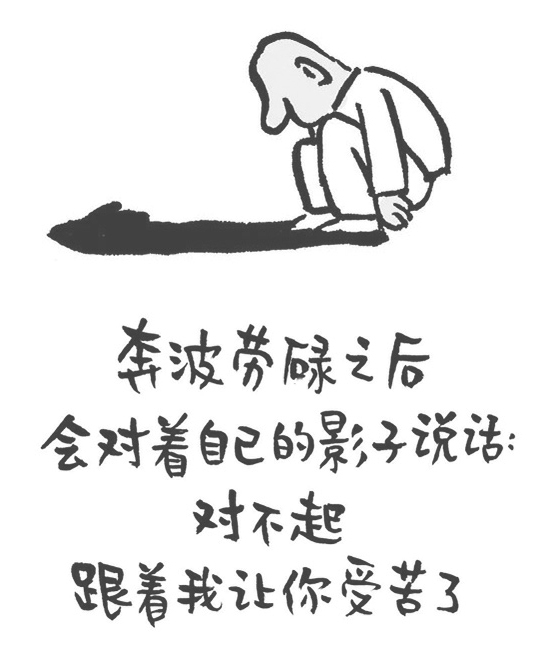 奔波劳碌之后
会对着自己的影子说话:
对不起
跟着我让你受苦了